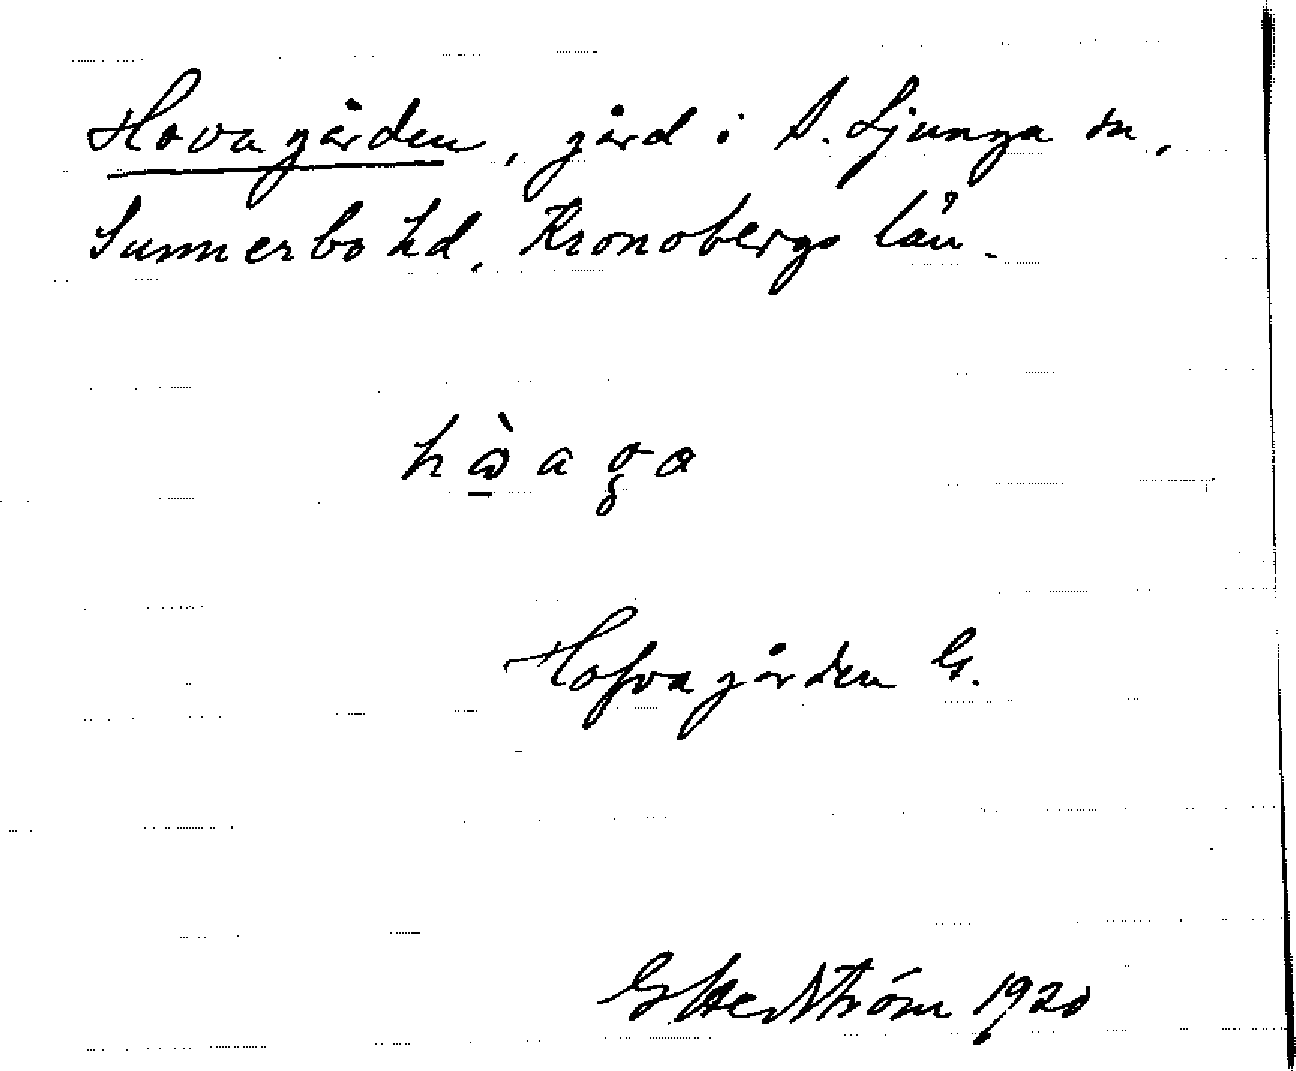 Hovagården, gård i S. Ljunga sn,
Sunnerbo hd, Kronobergs län.
Hofvagården G.
G Hedström 1920